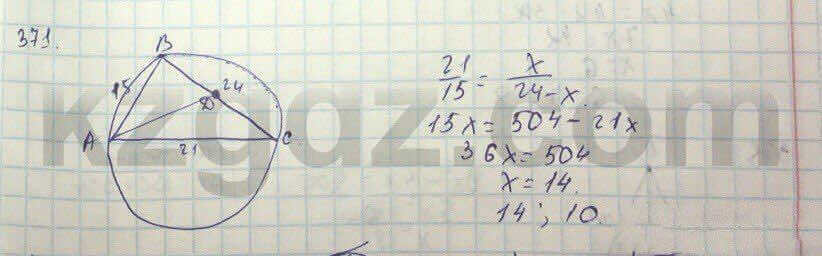 371.
B
15
24
D
A
21
C
21/15 = x/24-x
15x = 504 - 21x
36x = 504
x = 14.
14; 10.
kzgdz.com